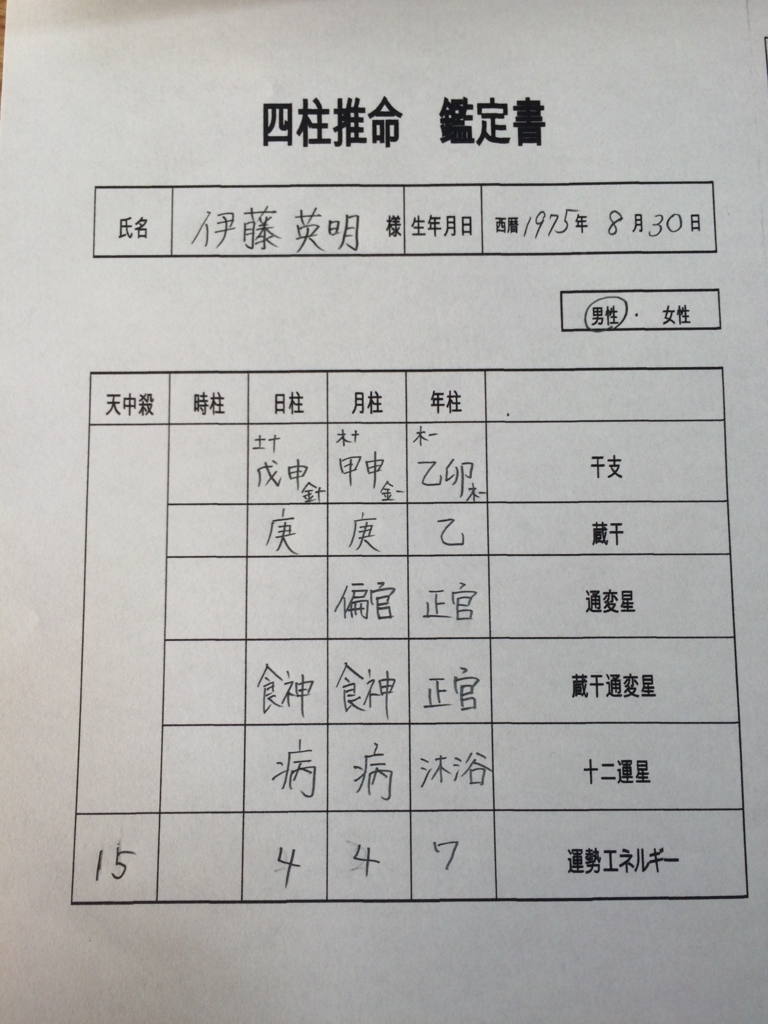 四柱推命 鑑定書
氏名 伊藤 英明 様 生年月日 西暦 1975年 8月30日
男性 ・ 女性
天中殺 時柱 日柱 月柱 年柱
土+ 木+ 木-
戊申 甲申 乙卯 干支
金+ 金- 木-
庚 庚 乙 蔵干
偏官 正官 通変星
食神 食神 正官 蔵干通変星
病 病 沐浴 十二運星
15 4 4 7 運勢エネルギー